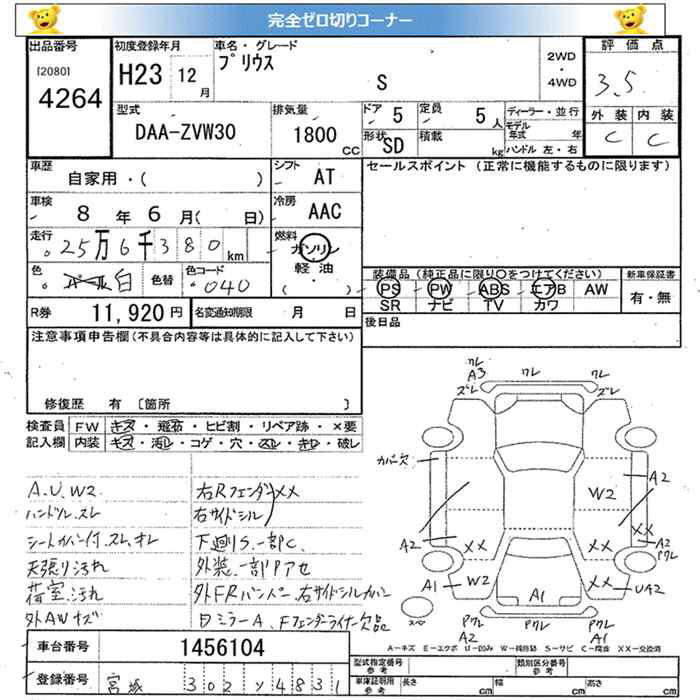 完全ゼロ切りコーナー
出品番号
[2080]
4264
初度登録年月
H23 12月
車名・グレード
プリウス
S
2WD
・
4WD
評価点
3.5
外装 内装
C C
型式
DAA-ZVW30
排気量
1800 CC
ドア 5
定員 5人
形状 SD
積載 kg
ディーラー・並行
モデル年式 年
ハンドル 左・右
車歴
自家用・( )
シフト AT
車検 8年6月( 日)
冷房 AAC
走行 25万6千380km
燃料 ガソリン
軽油
( ・ )
色 パール白
色替
色コード 040
R券 11,920円
名変通知期限 月 日
セールスポイント(正常に機能するものに限ります)
装備品(純正品に限り〇をつけてください)
新車保証書
PS PW ABS エアB AW
SR ナビ TV カワ
有・無
後日品
注意事項申告欄(不具合内容等は具体的に記入して下さい)
修復歴 有 〔箇所 〕
検査員記入欄
FW キズ・飛石・ヒビ割・リペア跡・×要
内装 キズ・汚レ・コゲ・穴・スレ・キレ・破レ
A.U.W2
ハンドル.スレ
シートカバー付.スレ.オレ
天張り汚れ
荷室.汚れ
外AWキズ
右Rフェンダー XX
右サイドシル
下廻りS.一部C.
外装.一部クアセ
外FRバンパー.右サイドシルカバー
ミラーA.Fフェンダーライナー欠品
クレ
A3
ズレ
クレ
クレ
ズレ
カバー欠
A2
W2
A2
XX
XX
XX
A2
Pクレ
A1
W2
A1
XX
UA2
スペ
Pクレ
A2
Pクレ
Pクレ
A1
A-キズ E-エクボ U-凹み W-補修跡 S-サビ C-腐食 XX-交換済
車台番号 1456104
登録番号 宮城 302 ソ 4831
型式指定番号 参考
類別区分番号 参考
車庫証明用 参考 長さ cm 幅 cm 高さ cm